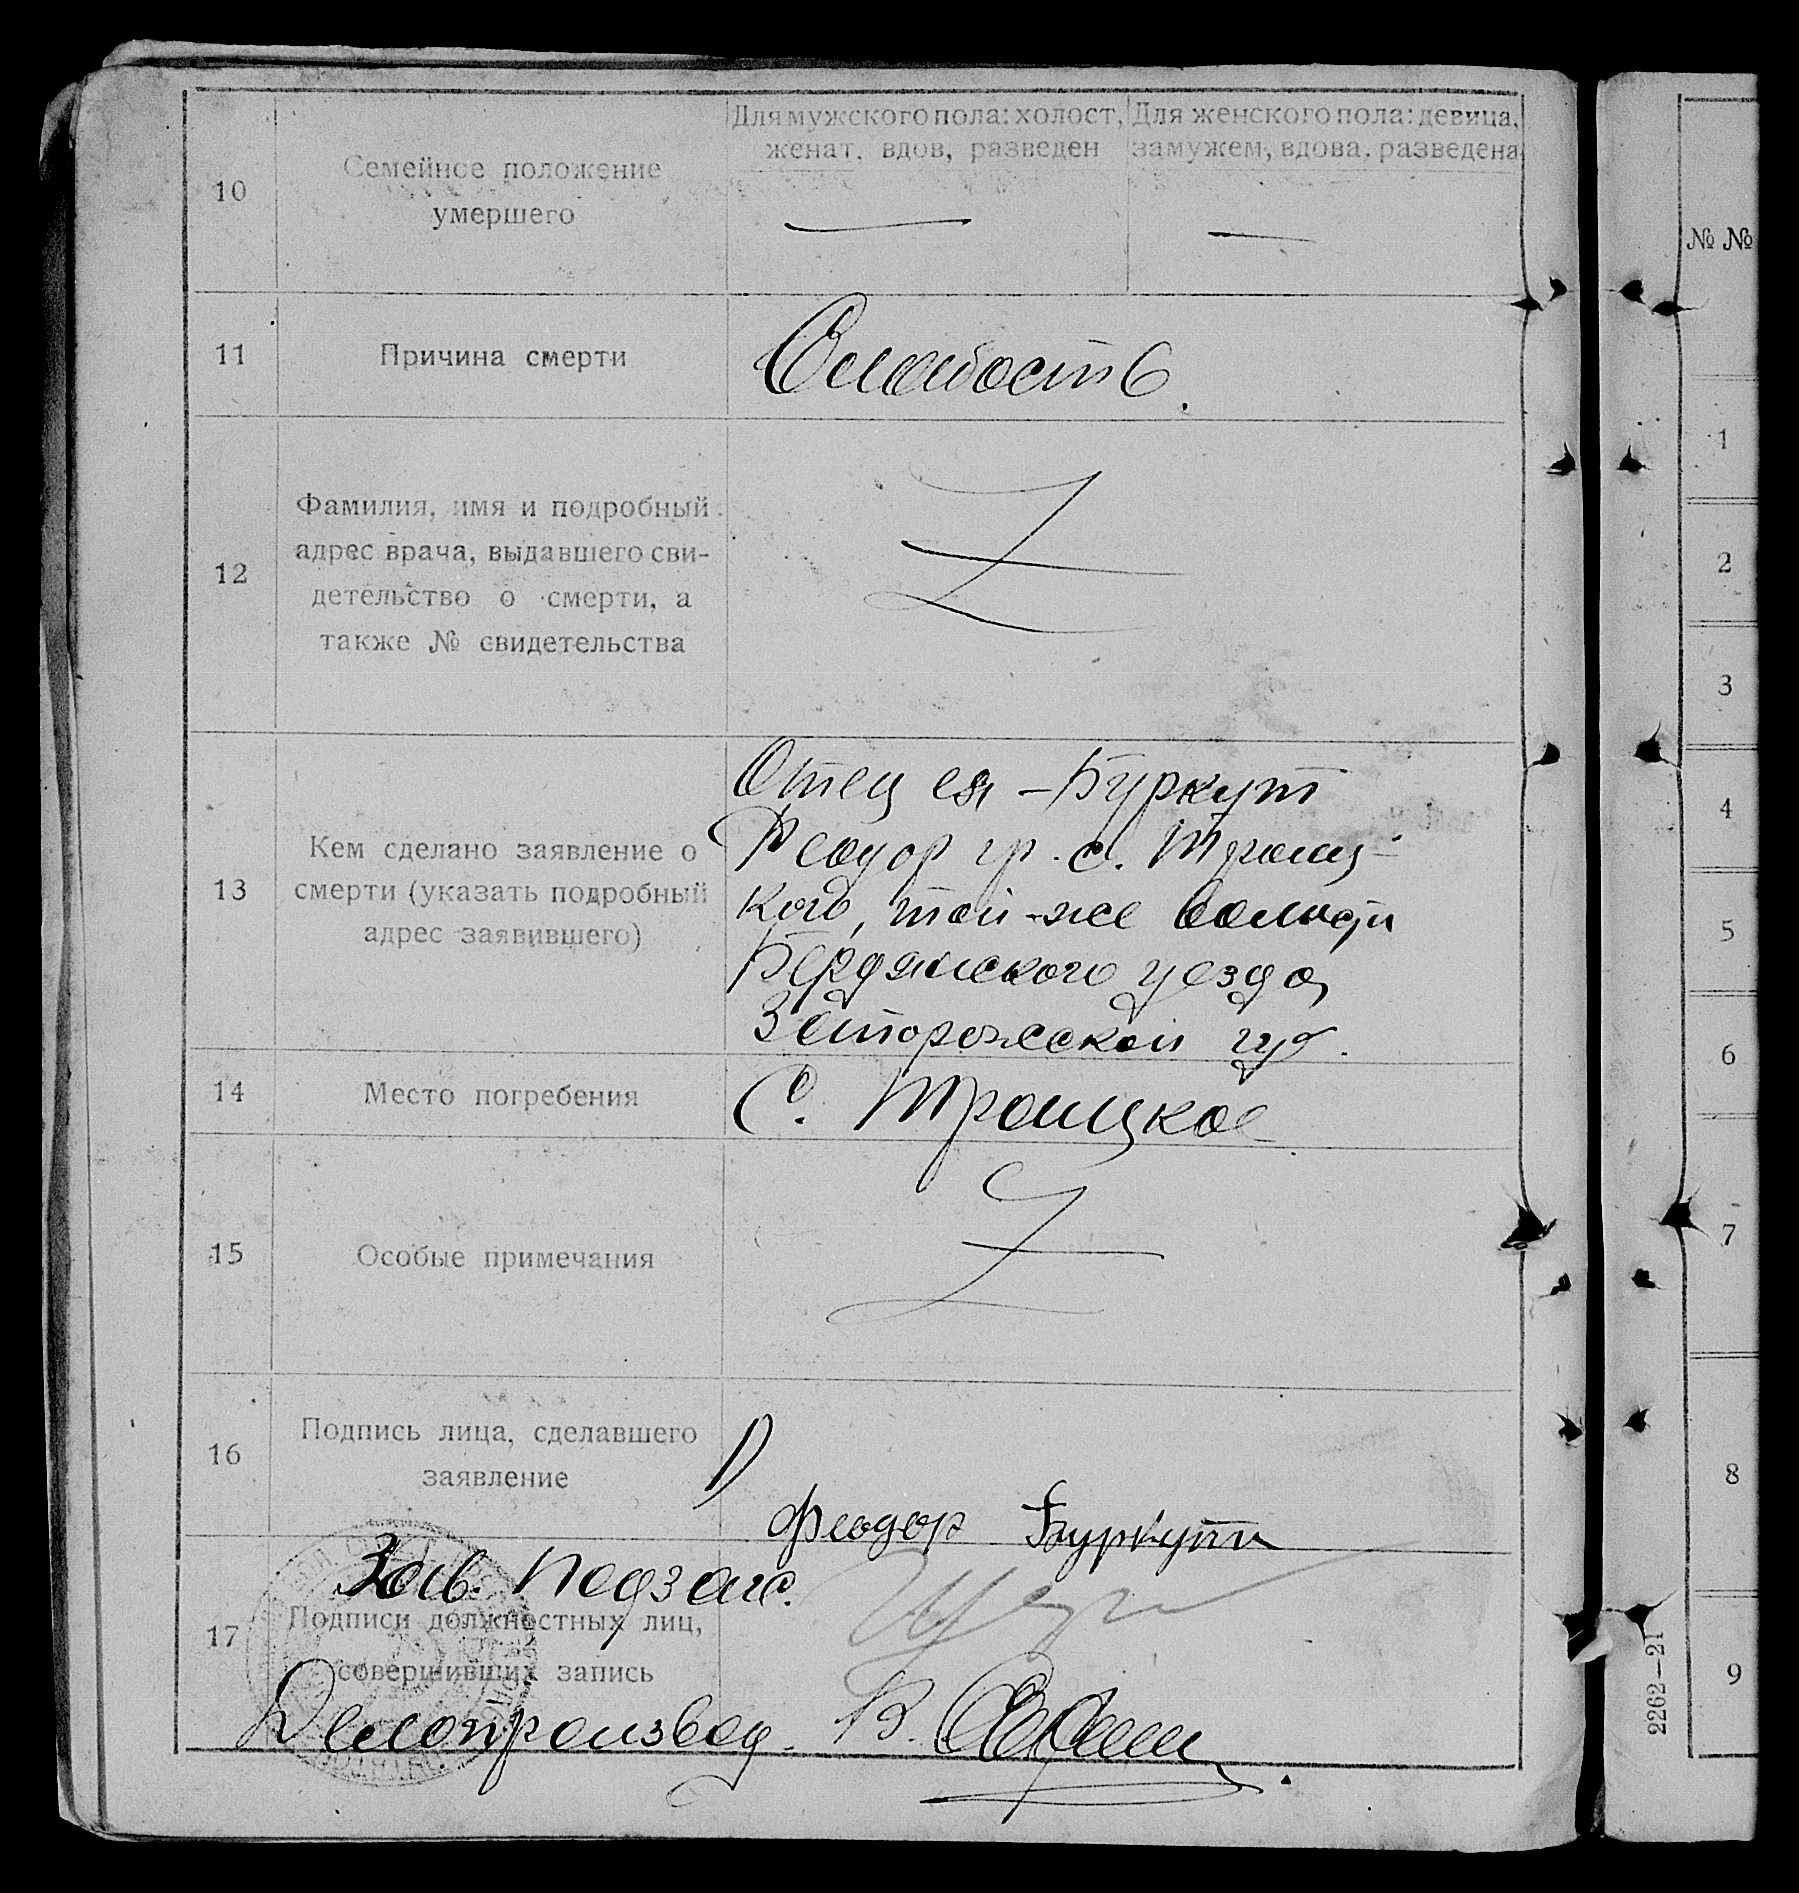 10
Семейное положение
умершего
Для мужского пола: холост,
женат, вдов, разведен
Для женского пола: девица,
замужем, вдова, разведена
—
—
11
Причина смерти
Слабость.
12
Фамилия, имя и подробный
адрес врача, выдавшего сви-
детельство о смерти, а
также № свидетельства
13
Кем сделано заявление о
смерти (указать подробный
адрес заявившего)
Отец ея – Буркут
Феодор гр. с. Троиц-
кого, той-же волости
Бердянского уезда
Запорожской губ.
14
Место погребения
С. Троицкое
15
Особые примечания
16
Подпись лица, сделавшего
заявление
Феодор Буркут
17
Зав. Подзагс.
Подписи должностных лиц,
совершивших запись
Делопроизвод. В.
№ №
1
2
3
4
5
6
7
8
9
2262—21